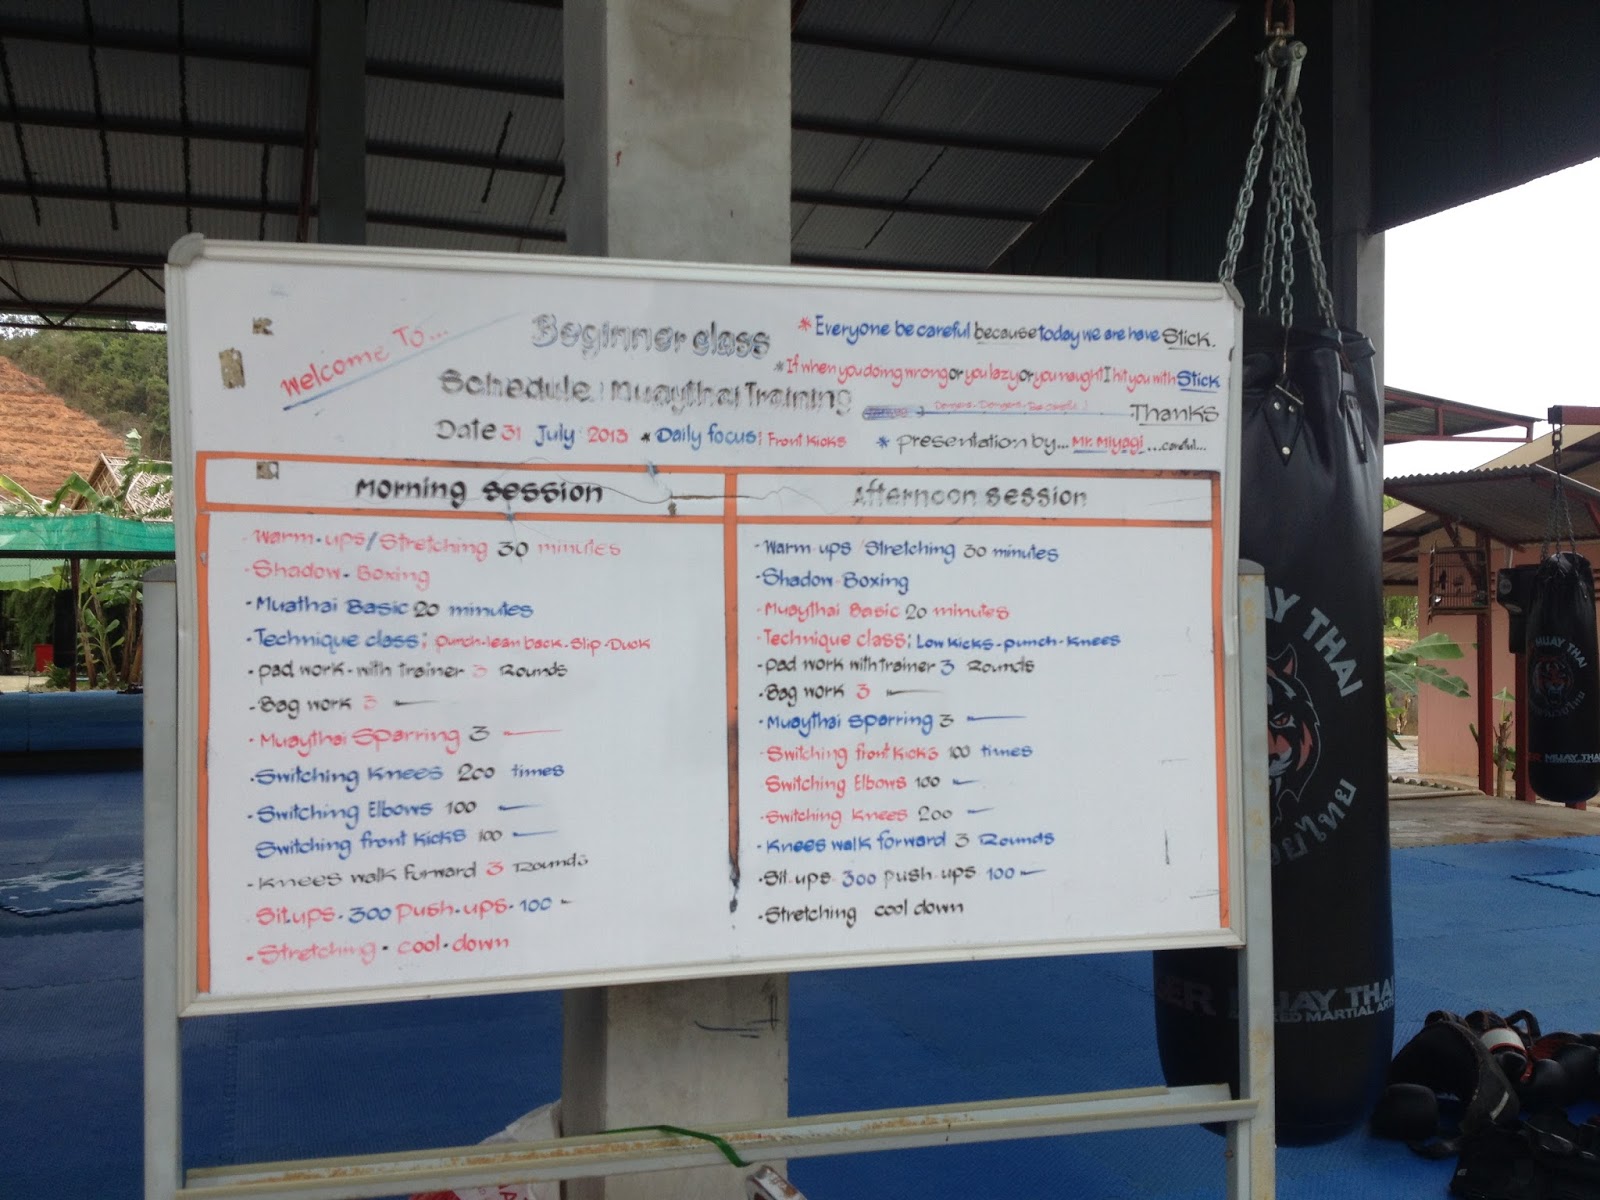 Welcome To...
Beginner class
Schedule : Muaythai Training
Date 31 July 2013 * Daily focus; Front Kicks
* Everyone be careful because today we are have Stick.
* If when you doing wrong or you lazy or you naught I hit you with Stick
Thanks
* presentation by... Mr. Miyagi ...careful...
Morning Session
- Warm-ups/Stretching 30 minutes
- Shadow-Boxing
- Muathai Basic 20 minutes
- Technique class; punch-lean back-Slip-Duck
- pad work-with trainer 3 Rounds
- Bag work 3
- Muaythai Sparring 3
- Switching Knees 200 times
- Switching Elbows 100
Switching front Kicks 100
- Knees walk forward 3 Rounds
- Sit ups-300 push-ups-100
- Stretching-cool-down
Afternoon Session
- Warm ups /Stretching 30 minutes
- Shadow Boxing
- Muaythai Basic 20 minutes
- Technique class; Low kicks-punch-knees
- pad work with trainer 3 Rounds
- Bag work 3
- Muaythai Sparring 3
- Switching front kicks 100 times
- Switching Elbows 100
- Switching Knees 200
- Knees walk forward 3 Rounds
- Sit-ups 300 push-ups 100
- Stretching cool down
MUAY THAI
MUAY THAI
MIXED MARTIAL ARTS
MUAY THAI
MUAY THAI